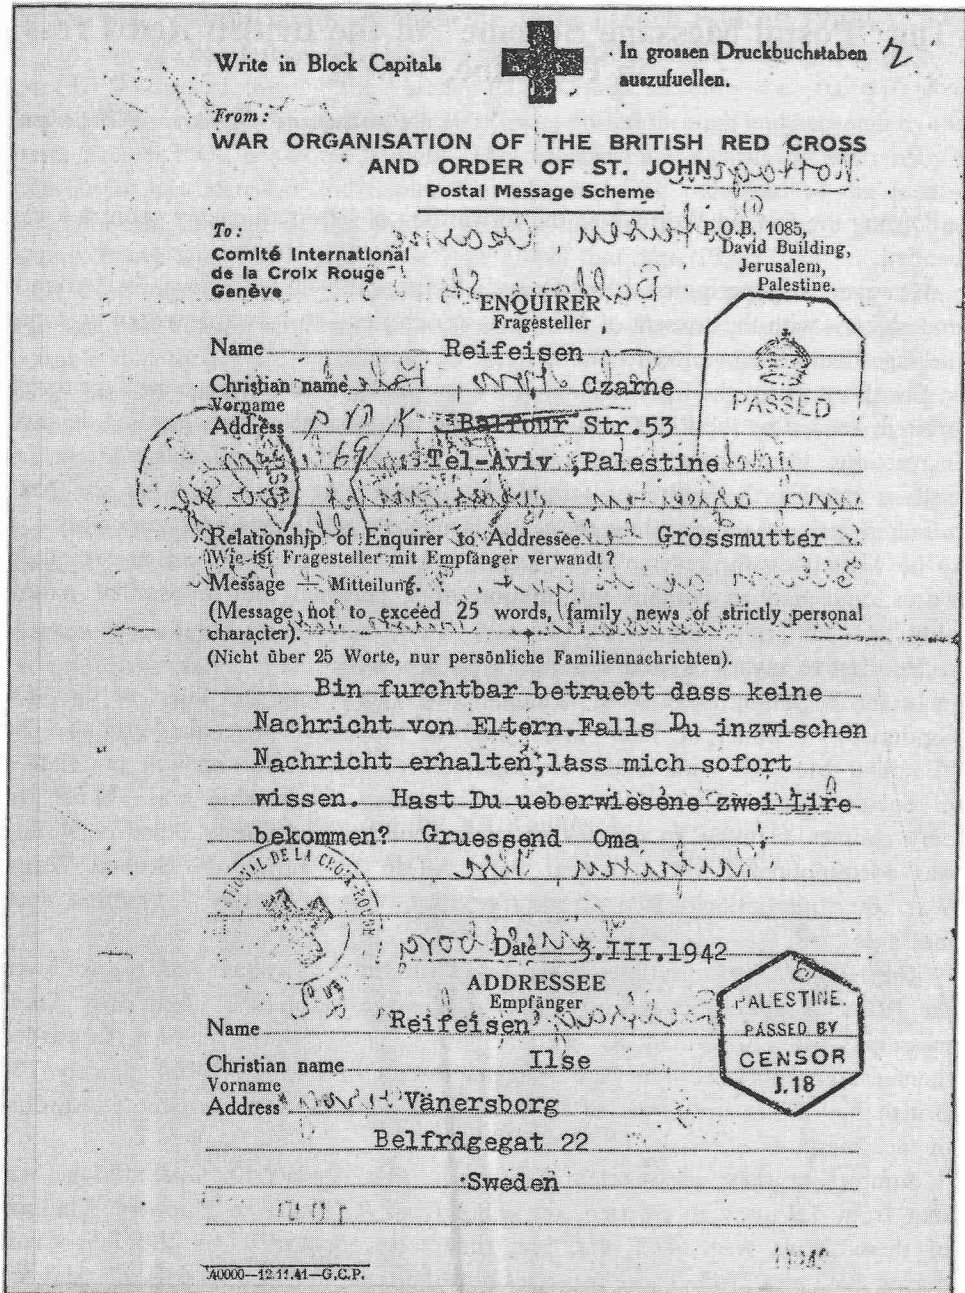 Write in Block Capitals
In grossen Druckbuchstaben
auszufuellen.
From:
WAR ORGANISATION OF THE BRITISH RED CROSS
AND ORDER OF ST. JOHN
Postal Message Scheme
To:
Comité International
de la Croix Rouge
Genève
P.O.B. 1085,
David Building,
Jerusalem,
Palestine.
ENQUIRER
Fragesteller
Name Reifeisen
Christian name Czarne
Vorname
Address Balfour Str.53
Tel-Aviv ,Palestine
PASSED
Relationship of Enquirer to Addressee Grossmutter
Wie ist Fragesteller mit Empfänger verwandt?
Message — Mitteilung.
(Message not to exceed 25 words, family news of strictly personal
character).
(Nicht über 25 Worte, nur persönliche Familiennachrichten).
Bin furchtbar betruebt dass keine
Nachricht von Eltern.Falls Du inzwischen
Nachricht erhalten,lass mich sofort
wissen. Hast Du ueberwiesene zwei Lire
bekommen? Gruessend Oma
DE LA CROIX-ROUGE
Date 3.III.1942
ADDRESSEE
Empfänger
Name Reifeisen
Christian name Ilse
Vorname
Address Vänersborg
Belfrdgegat 22
Sweden
PALESTINE.
PASSED BY
CENSOR
J.18
40000—12.11.41—G.C.P.